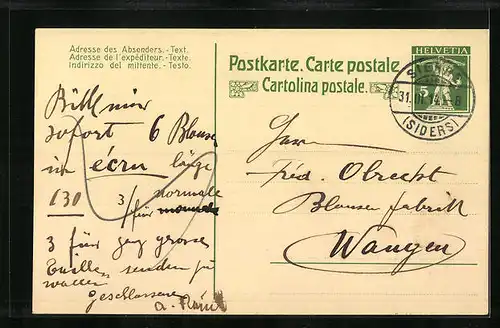 Adresse des Absenders. - Text.
Adresse de l'expéditeur. - Texte.
Indirizzo del mittente. - Testo.
Postkarte. Carte postale
Cartolina postale.
HELVETIA
5
31.III.14
(SIDERS)
Bitte mir
sofort 6 Blousen
in écru länge
130 3/ normale
für
3 für gross
senden zu
wollen
geschlossen
Herrn
Fréd. Obrecht
Blousenfabrik
Wangen